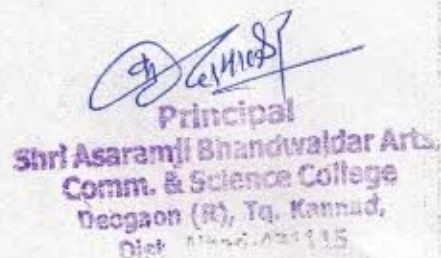 Principal
Shri Asaramji Bhandwaldar Arts,
Comm. & Science College
Deogaon (R), Tq. Kannad,
Dist